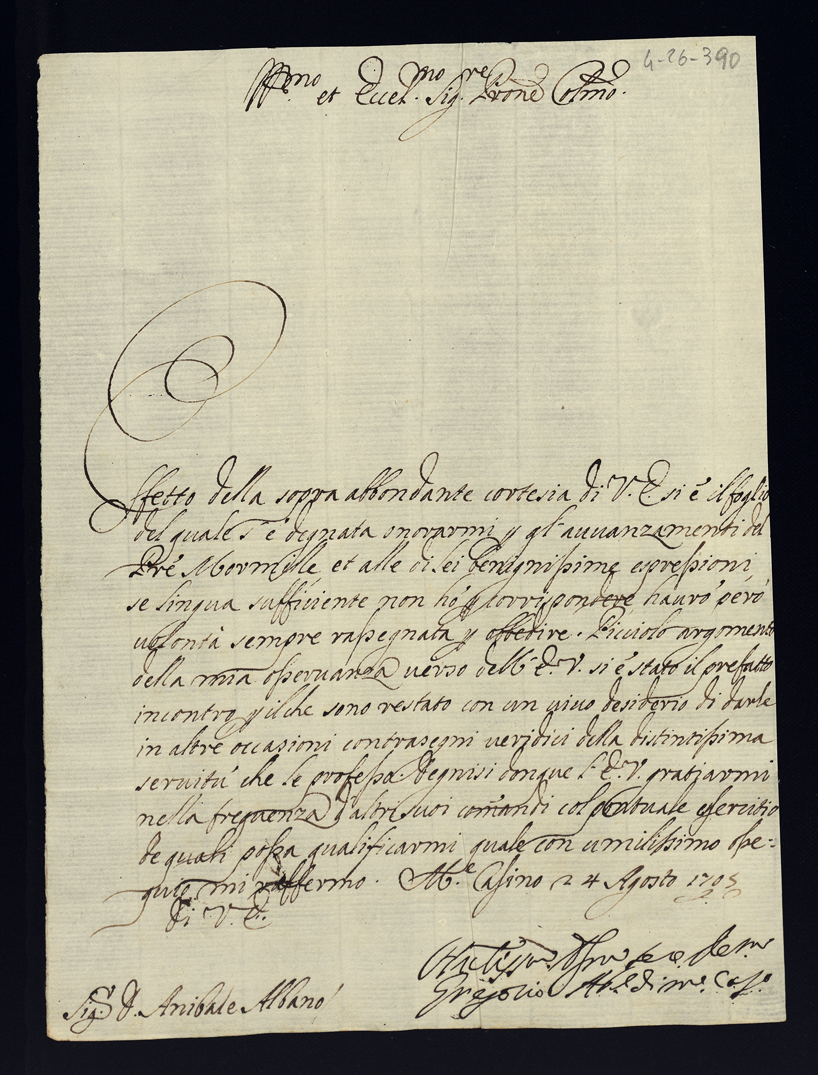 4-26-390
Ill.mo et Eccel.mo Sig.re Prone Colmo.
Effetto della sopra abbondante cortesia di V. E. si è il foglio
del quale s'è degnata onorarmi p gl'auuanzamenti del
Pre Mormille et alle di lei benignissime espressioni,
se lingua sufficiente non hò p corrispondere haurò però
uolontà sempre rassegnata p obbedire. Picciolo argomento
della mia osseruanza uerso dell' E. V. si è stato il prefatto
incontro p il che sono restato con un uiuo desiderio di darle
in altre occasioni contrasegni ueridici della distintissima
seruitù che le professo. Degnisi donque l'E. V. gratjarmi
nella frequenza d'altri suoi comandi col pontuale esercitio
de quali possa qualificarmi quale con umilissimo osse=
quio mi raffermo. M.e Casino 24 Agosto 1705
Di V. E.
Sig. D. Anibale Albano
Gregorio Ab.e di M.e Cas.o